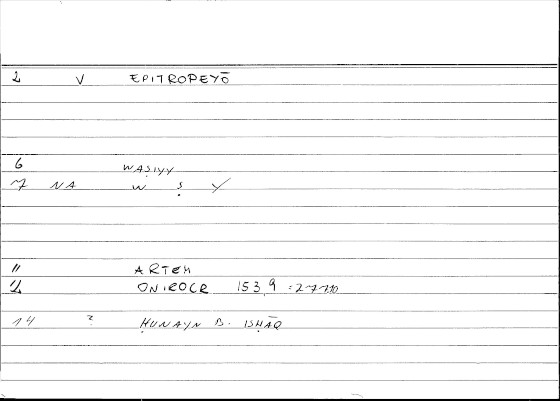 2 V EPITROPEYŌ
6 WAṢIYY
7 NA W Ṣ Y
11 ARTEM
12 ONIROCR 153,9 :277,10
14 ? ḤUNAYN B. ISḤĀQ